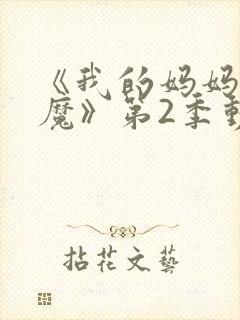 《我的妈妈
魔》第2季
拈花文藝